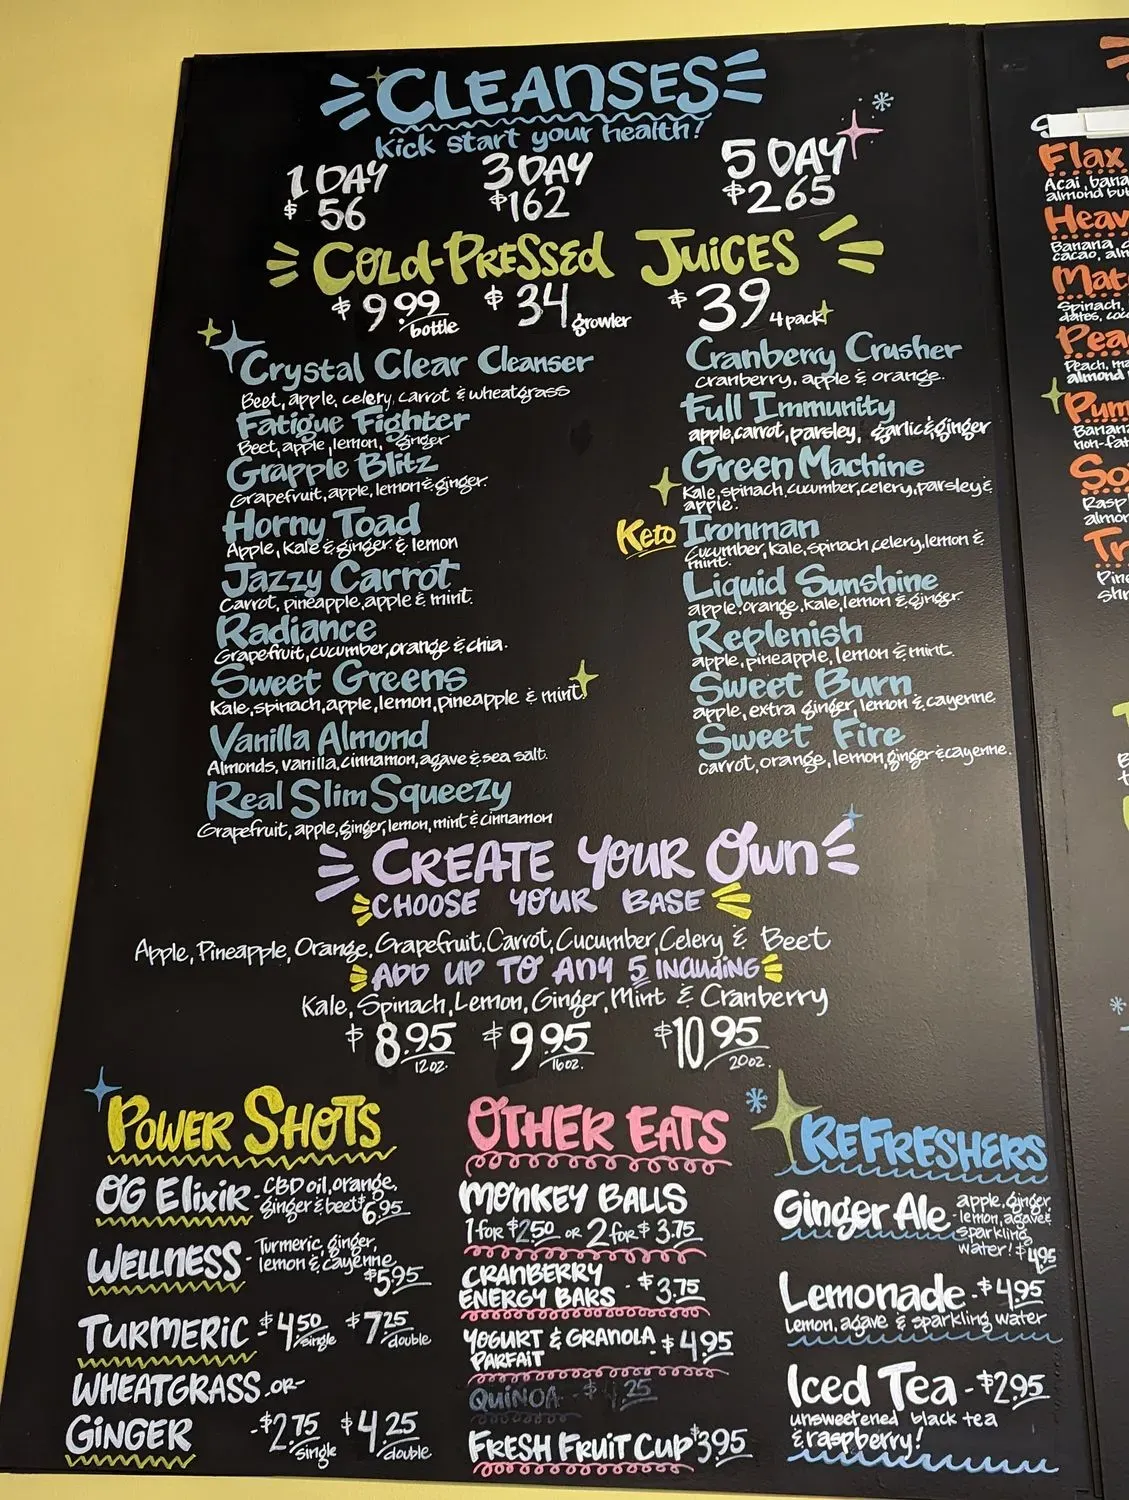 CLEANSES
Kick start your health!
1 DAY 3 DAY 5 DAY
$56 $162 $265
COLD-PRESSED JUICES
$9.99 bottle $34 growler $39 4 pack
Crystal Clear Cleanser
Beet, apple, celery, carrot & wheatgrass
Fatigue Fighter
Beet, apple, lemon, ginger
Grapple Blitz
Grapefruit, apple, lemon & ginger.
Horny Toad
Apple, Kale & ginger & lemon
Jazzy Carrot
Carrot, pineapple, apple & mint.
Radiance
Grapefruit, cucumber, orange & chia.
Sweet Greens
Kale, spinach, apple, lemon, pineapple & mint
Vanilla Almond
Almonds, vanilla, cinnamon, agave & sea salt.
Real Slim Squeezy
Grapefruit, apple, ginger, lemon, mint & cinnamon
Cranberry Crusher
cranberry, apple & orange.
Full Immunity
apple, carrot, parsley, garlic & ginger
Green Machine
Kale, spinach, cucumber, celery, parsley &
apple.
Keto Ironman
Cucumber, kale, spinach, celery, lemon &
mint.
Liquid Sunshine
apple, orange, kale, lemon & ginger.
Replenish
apple, pineapple, lemon & mint.
Sweet Burn
apple, extra ginger, lemon & cayenne
Sweet Fire
carrot, orange, lemon, ginger & cayenne.
CREATE YOUR OWN
CHOOSE YOUR BASE
Apple, Pineapple, Orange, Grapefruit, Carrot, Cucumber, Celery & Beet
ADD UP TO ANY 5 INCLUDING
Kale, Spinach, Lemon, Ginger, Mint & Cranberry
$8.95 12oz. $9.95 16oz. $10.95 20oz.
POWER SHOTS
OG Elixir - CBD oil, orange,
ginger & beet $6.95
WELLNESS - Turmeric, ginger,
lemon & cayenne
$5.95
TURMERIC - $4.50 single $7.25 double
WHEATGRASS -OR-
GINGER - $2.75 single $4.25 double
OTHER EATS
MONKEY BALLS
1 for $2.50 OR 2 for $3.75
CRANBERRY
ENERGY BARS - $3.75
YOGURT & GRANOLA
PARFAIT - $4.95
QUINOA - $4.25
FRESH FRUIT CUP $3.95
REFRESHERS
Ginger Ale - apple, ginger,
lemon, agave &
sparkling
water! $4.95
Lemonade - $4.95
Lemon, agave & sparkling water
Iced Tea - $2.95
unsweetened black tea
& raspberry!
Flax
Acai, bana
almond but
Heav
Banana, c
cacao, alm
Mat
Spinach,
dates, coc
Pea
Peach, ma
almond
Pum
Banan
non-fat
So
Rasp
almon
Tr
Pine